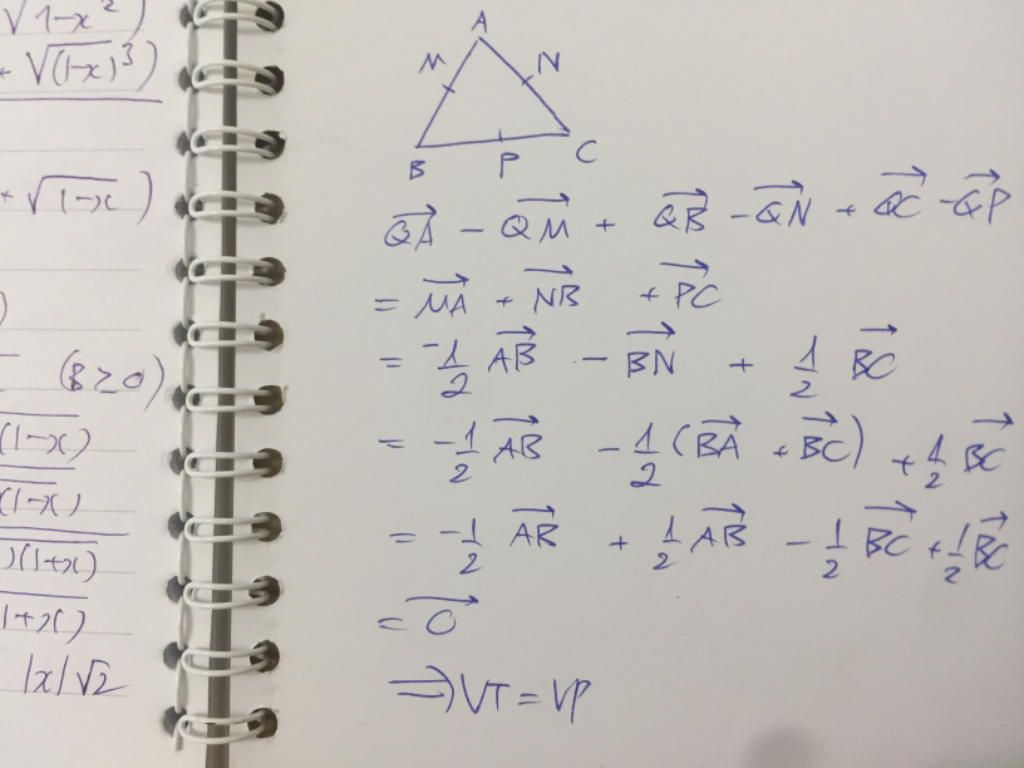 √1-x²)
+ √(1-x)³)
+ √1-x)
)
(8 ≥ 0)
(1-x)
(1-x)
)(1+x)
1+x)
|x|√2
A
M N
B P C
→QA - →QM + →QB - →QN + →QC - →QP
= →MA + →NB + →PC
= -1/2 →AB - →BN + 1/2 →BC
= -1/2 →AB - 1/2 (→BA + →BC) + 1/2 →BC
= -1/2 →AB + 1/2 →AB - 1/2 →BC + 1/2 →BC
= →0
⇒ VT = VP